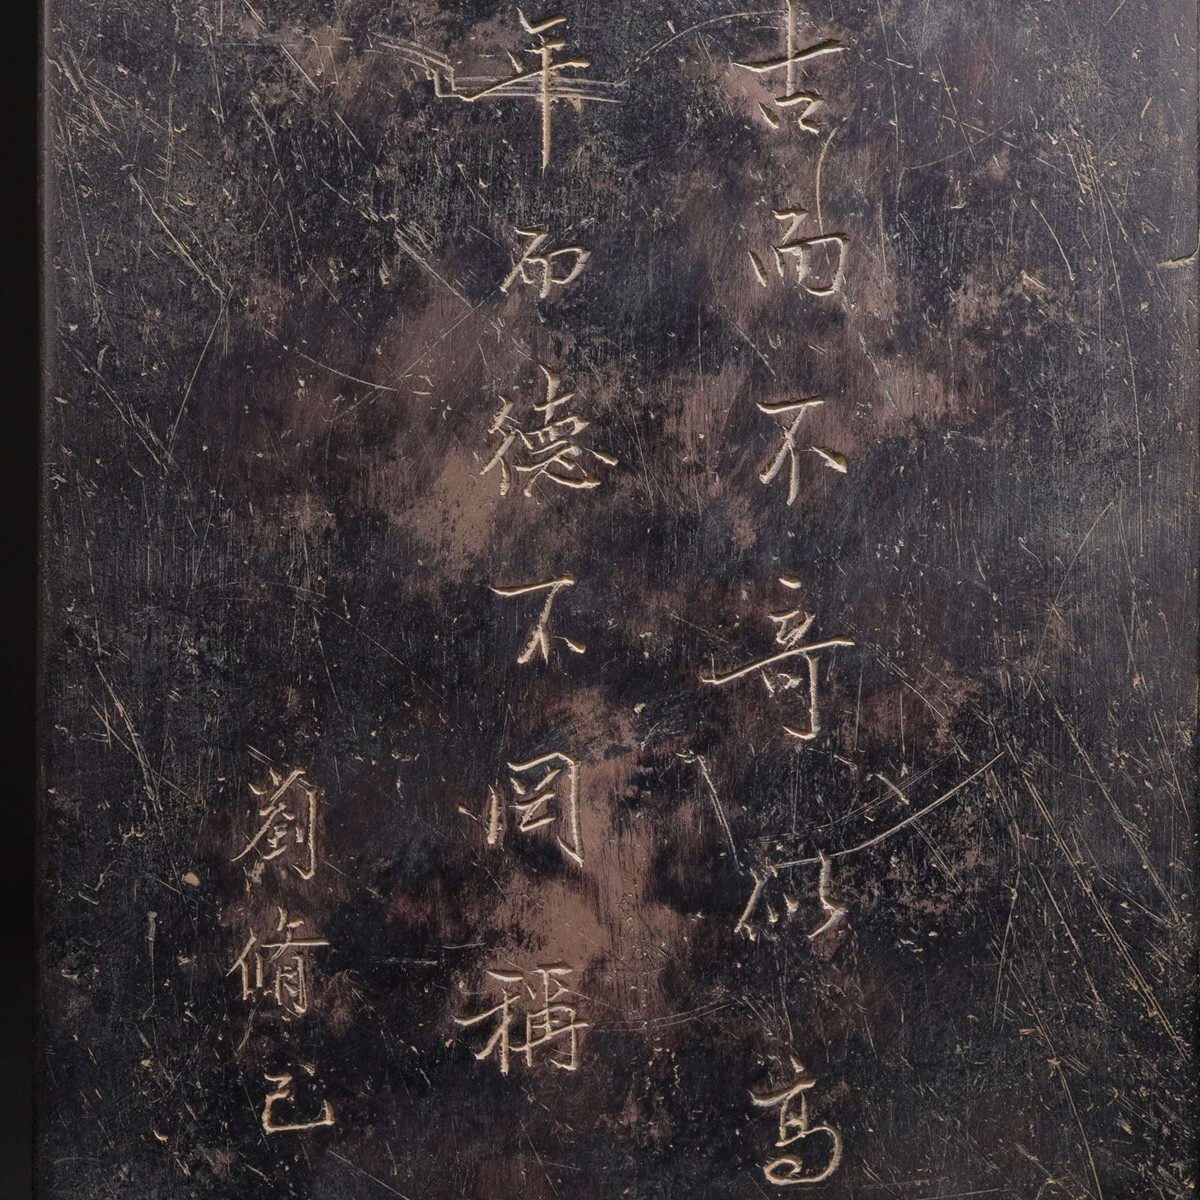 古而不奇似高
年而德不罔稱
劉脩己